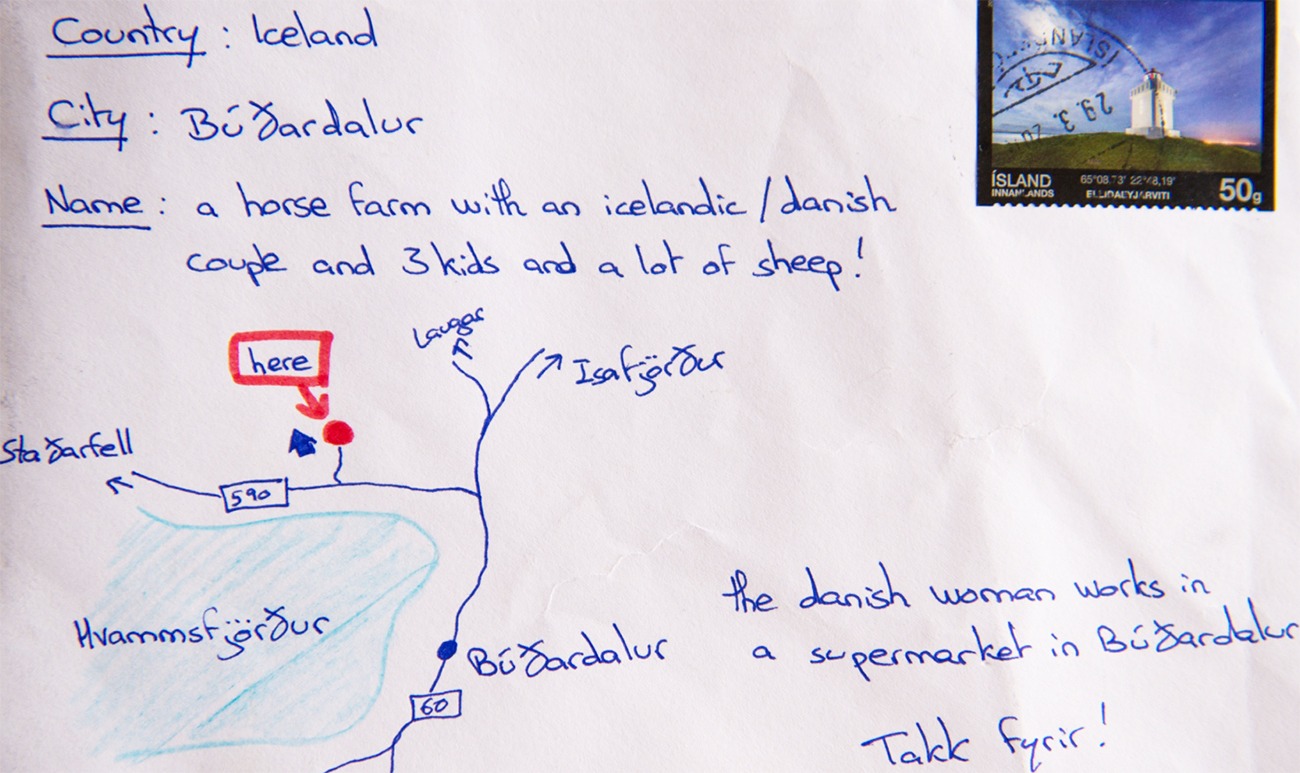 Country : Iceland
City : Búðardalur
Name : a horse farm with an icelandic/danish
couple and 3 kids and a lot of sheep!
ÍSLAND
29.3.
ÍSLAND
INNANLANDS
65°08,73' 22°48,19'
ELLIÐAEYJARVITI
50g
here
Laugar
Isafjörður
Staðarfell
590
Hvammsfjörður
Búðardalur
60
the danish woman works in
a supermarket in Búðardalur
Takk fyrir!